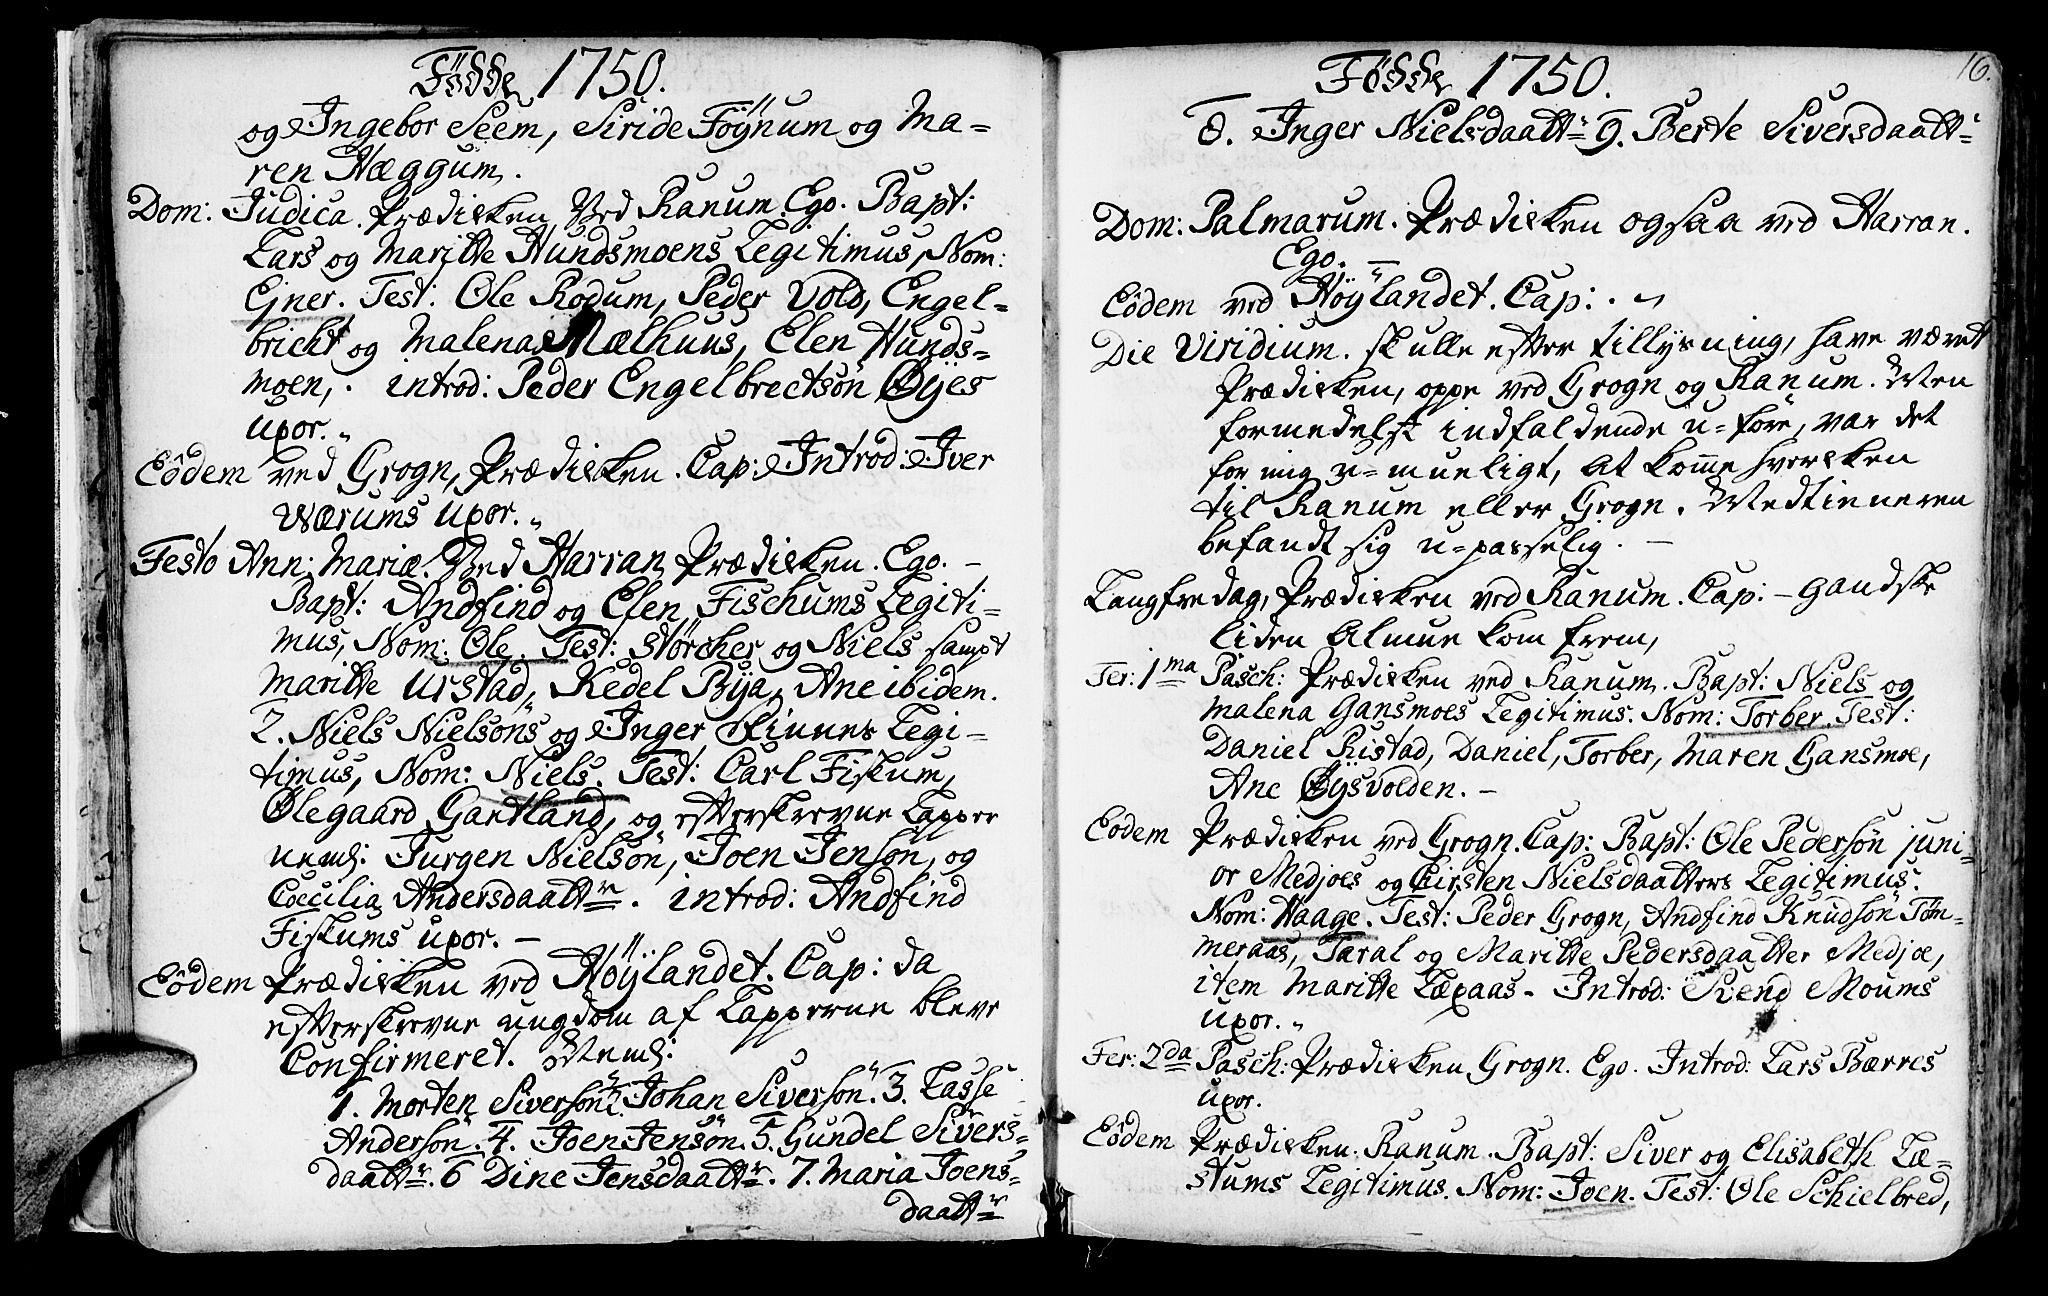 Födde 1750.
og Ingebor Seem, Siride Föÿnum og Ma=
ren Hæggum.
Dom: Judica. Prædicken Ved Ranum. Ego. Bapt:
Lars og Maritte Hundsmoens Legitimus, Nom:
Ejner. Test: Ole Rodum, Peder Vold, Engel=
bricht og Malena Mælhuus, Elen Hunds=
moen,. introd: Peder Engelbrectsön Øÿes
uxor.
Eôdem ved Grogn, Prædicken. Cap: Introd: Iver
Wærums uxor.
Festo Ann: Mariæ. Ved Harran Prædicken. Ego. –
Bapt: Andfind og Elen Fischums Legiti=
mus, Nom: Ole. Test: Störcher og Niels sampt
Maritte Urstad, Kedel Bÿa, Ane ibidem.
2. Niels Nielsöns og Inger Finnes Legi=
timus, Nom: Niels. Test: Carl Fiskum,
Ølegaard Gartland, og efterskrevne Lapper
neml: Jurgen Nielsön, Joen Jensön, og
Coecilia Andersdaattr. introd: Andfind
Fiskums uxor. –
Eôdem Prædicken ved Höÿlandet. Cap: da
efterskrevne ungdom af Lapperne bleve
Confirmeret. Neml:
1. Morten Siversön 2. Johan Siversön. 3. Lasse
Andersön. 4. Joen Jensön. 5. Gundel Sivers=
daattr. 6 Dine Jensdaattr. 7. Maria Joens=
daattr
16.
Födde 1750.
8. Inger Nielsdaattr 9. Berte Siversdaattr
Dom: Palmarum. Prædicken ogsaa ved Harran.
Ego. –
Eôdem ved Höÿlandet. Cap:.
Die Viridium. skulle efter tillysning, have været
Prædicken, oppe ved Grogn og Ranum. Men
formedelst indfaldende u=före, var det
for mig u=mueligt, at kom̅e hvercken
til Ranum eller Grogn. Medtieneren
befandt sig u=passelig. –
Langfredag, Prædicken ved Ranum. Cap: – gandske
liden Almue kom frem,
Fer: 1ma Pasch: Prædicken ved Ranum. Bapt: Niels og
Malena Gansmoes Legitimus. Nom: Torber. Test:
Daniel Ristad, Daniel, Torber, Maren Gansmoe,
Ane Øÿsvolden. –
Eodem Prædicken ved Grogn. Cap: Bapt: Ole Pedersön juni=
or Medjoes og Kirsten Nielsdaatters Legitimus.
Nom: Haage. Test: Peder Grogn, Andfind Knudsön Töm=
meraas, Taral og Maritte Pedersdaatter Medjoe,
item Maritte Læxaas – Introd: Svend Moums
uxor.
Fer: 2da Pasch: Prædicken Grogn. Ego. Introd: Lars Bærres
uxor.
Eôdem Prædicken. Ranum. Bapt: Siver og Elisabeth Læ=
stums Legitimus. Nom: Joen. Test: Ole Schielbred,